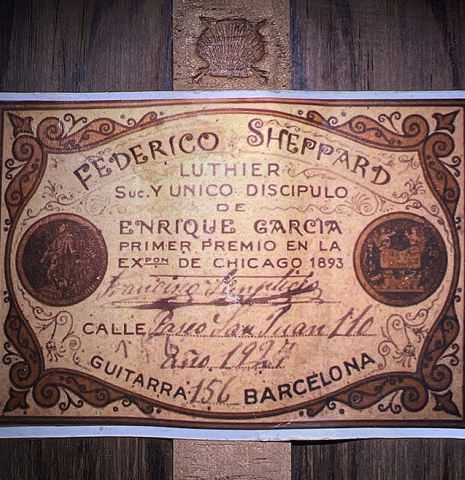 FEDERICO SHEPPARD
LUTHIER
SUC. Y UNICO DISCIPULO
DE
ENRIQUE GARCIA
PRIMER PREMIO EN LA
EXPON DE CHICAGO 1893
Francisco
CALLE Paseo San Juan 110
Año 1927
GUITARRA: 156 BARCELONA